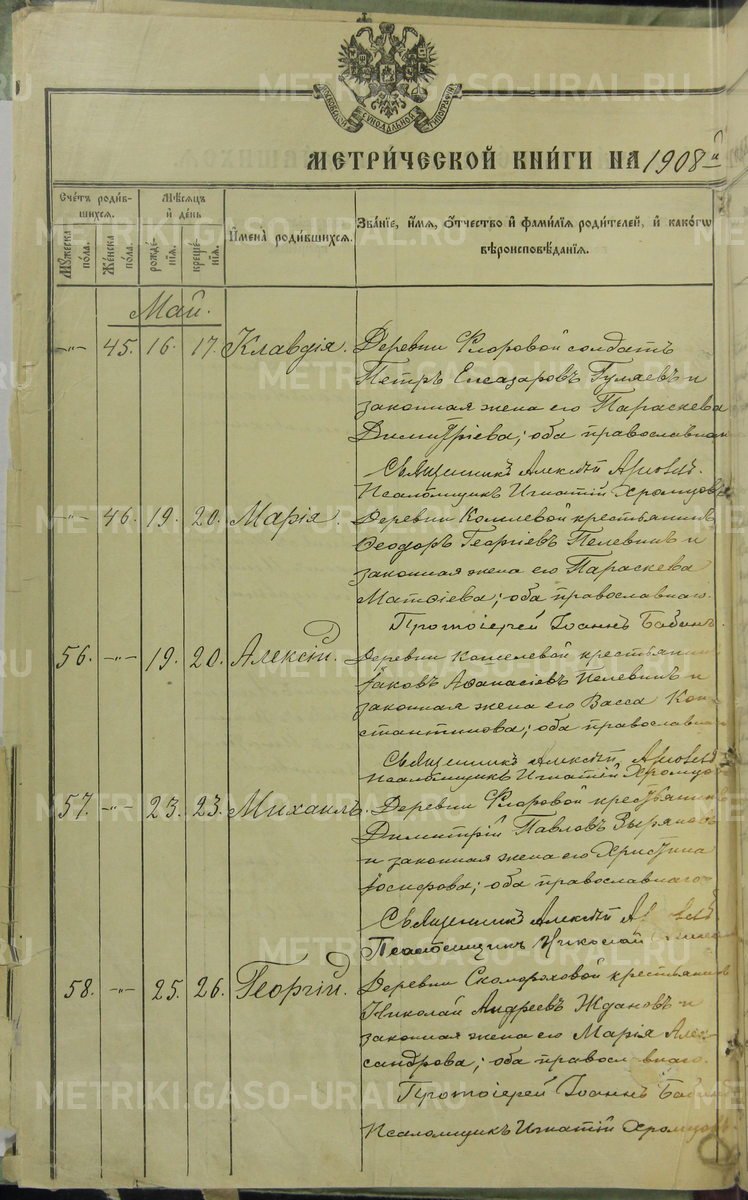 МОСКОВСКОЙ СѴНОДАЛЬНОЙ ТИПОГРАФІИ
МЕТРИ́ЧЕСКОЙ КНИ́ГИ НА 1908 й
Счетъ родив-
шихся.
Мꙋжеска
по́ла.
Же́нска
по́ла.
Мѣсяцъ
и҆ де́нь
рожде́-
нія.
креще́-
нія.
И҆мена̀ роди́вшихся.
Зва́ніе, и҆́мя, ѻ҆́тчество и҆ фами́лія роди́телей, и҆ како́гѡ
вѣроисповѣ́данія.
Май.
-"- 45. 16. 17. Клавдія. Деревни Флоровой солдатъ
Петръ Елеазаровъ Гуляевъ и
законная жена его Параскева
Димитріева; оба православнаго
Священникъ Алексѣй
Псаломщикъ Игнатій Хромцовъ
-"- 46. 19. 20. Марія. Деревни крестьянинъ
Ѳеодоръ Георгіевъ Пелевинъ и
законная жена его Параскева
Матѳіева; оба православнаго.
Протоіерей Іоаннъ Бабинъ.
56. -"- 19. 20. Алексій. Деревни крестьянинъ
Іаковъ Аѳанасіевъ Пелевинъ и
законная жена его Васса Кон-
стантинова; оба православнаго
Священникъ Алексѣй
Псаломщикъ Игнатій Хромцовъ
57. -"- 23. 23. Михаилъ. Деревни Флоровой крестьянинъ
Димитрій Павловъ Зыряновъ
и законная жена его Христина
Іосифова; оба православнаго
Священникъ Алексѣй
Псаломщикъ Николай
58. -"- 25. 26. Георгій. Деревни Скомороховой крестьянинъ
Николай Андреевъ Ждановъ и
законная жена его Марія Алек-
сандрова; оба православнаго.
Протоіерей Іоаннъ Бабинъ
Псаломщикъ Игнатій Хромцовъ
METRIKI.GASO-URAL.RU